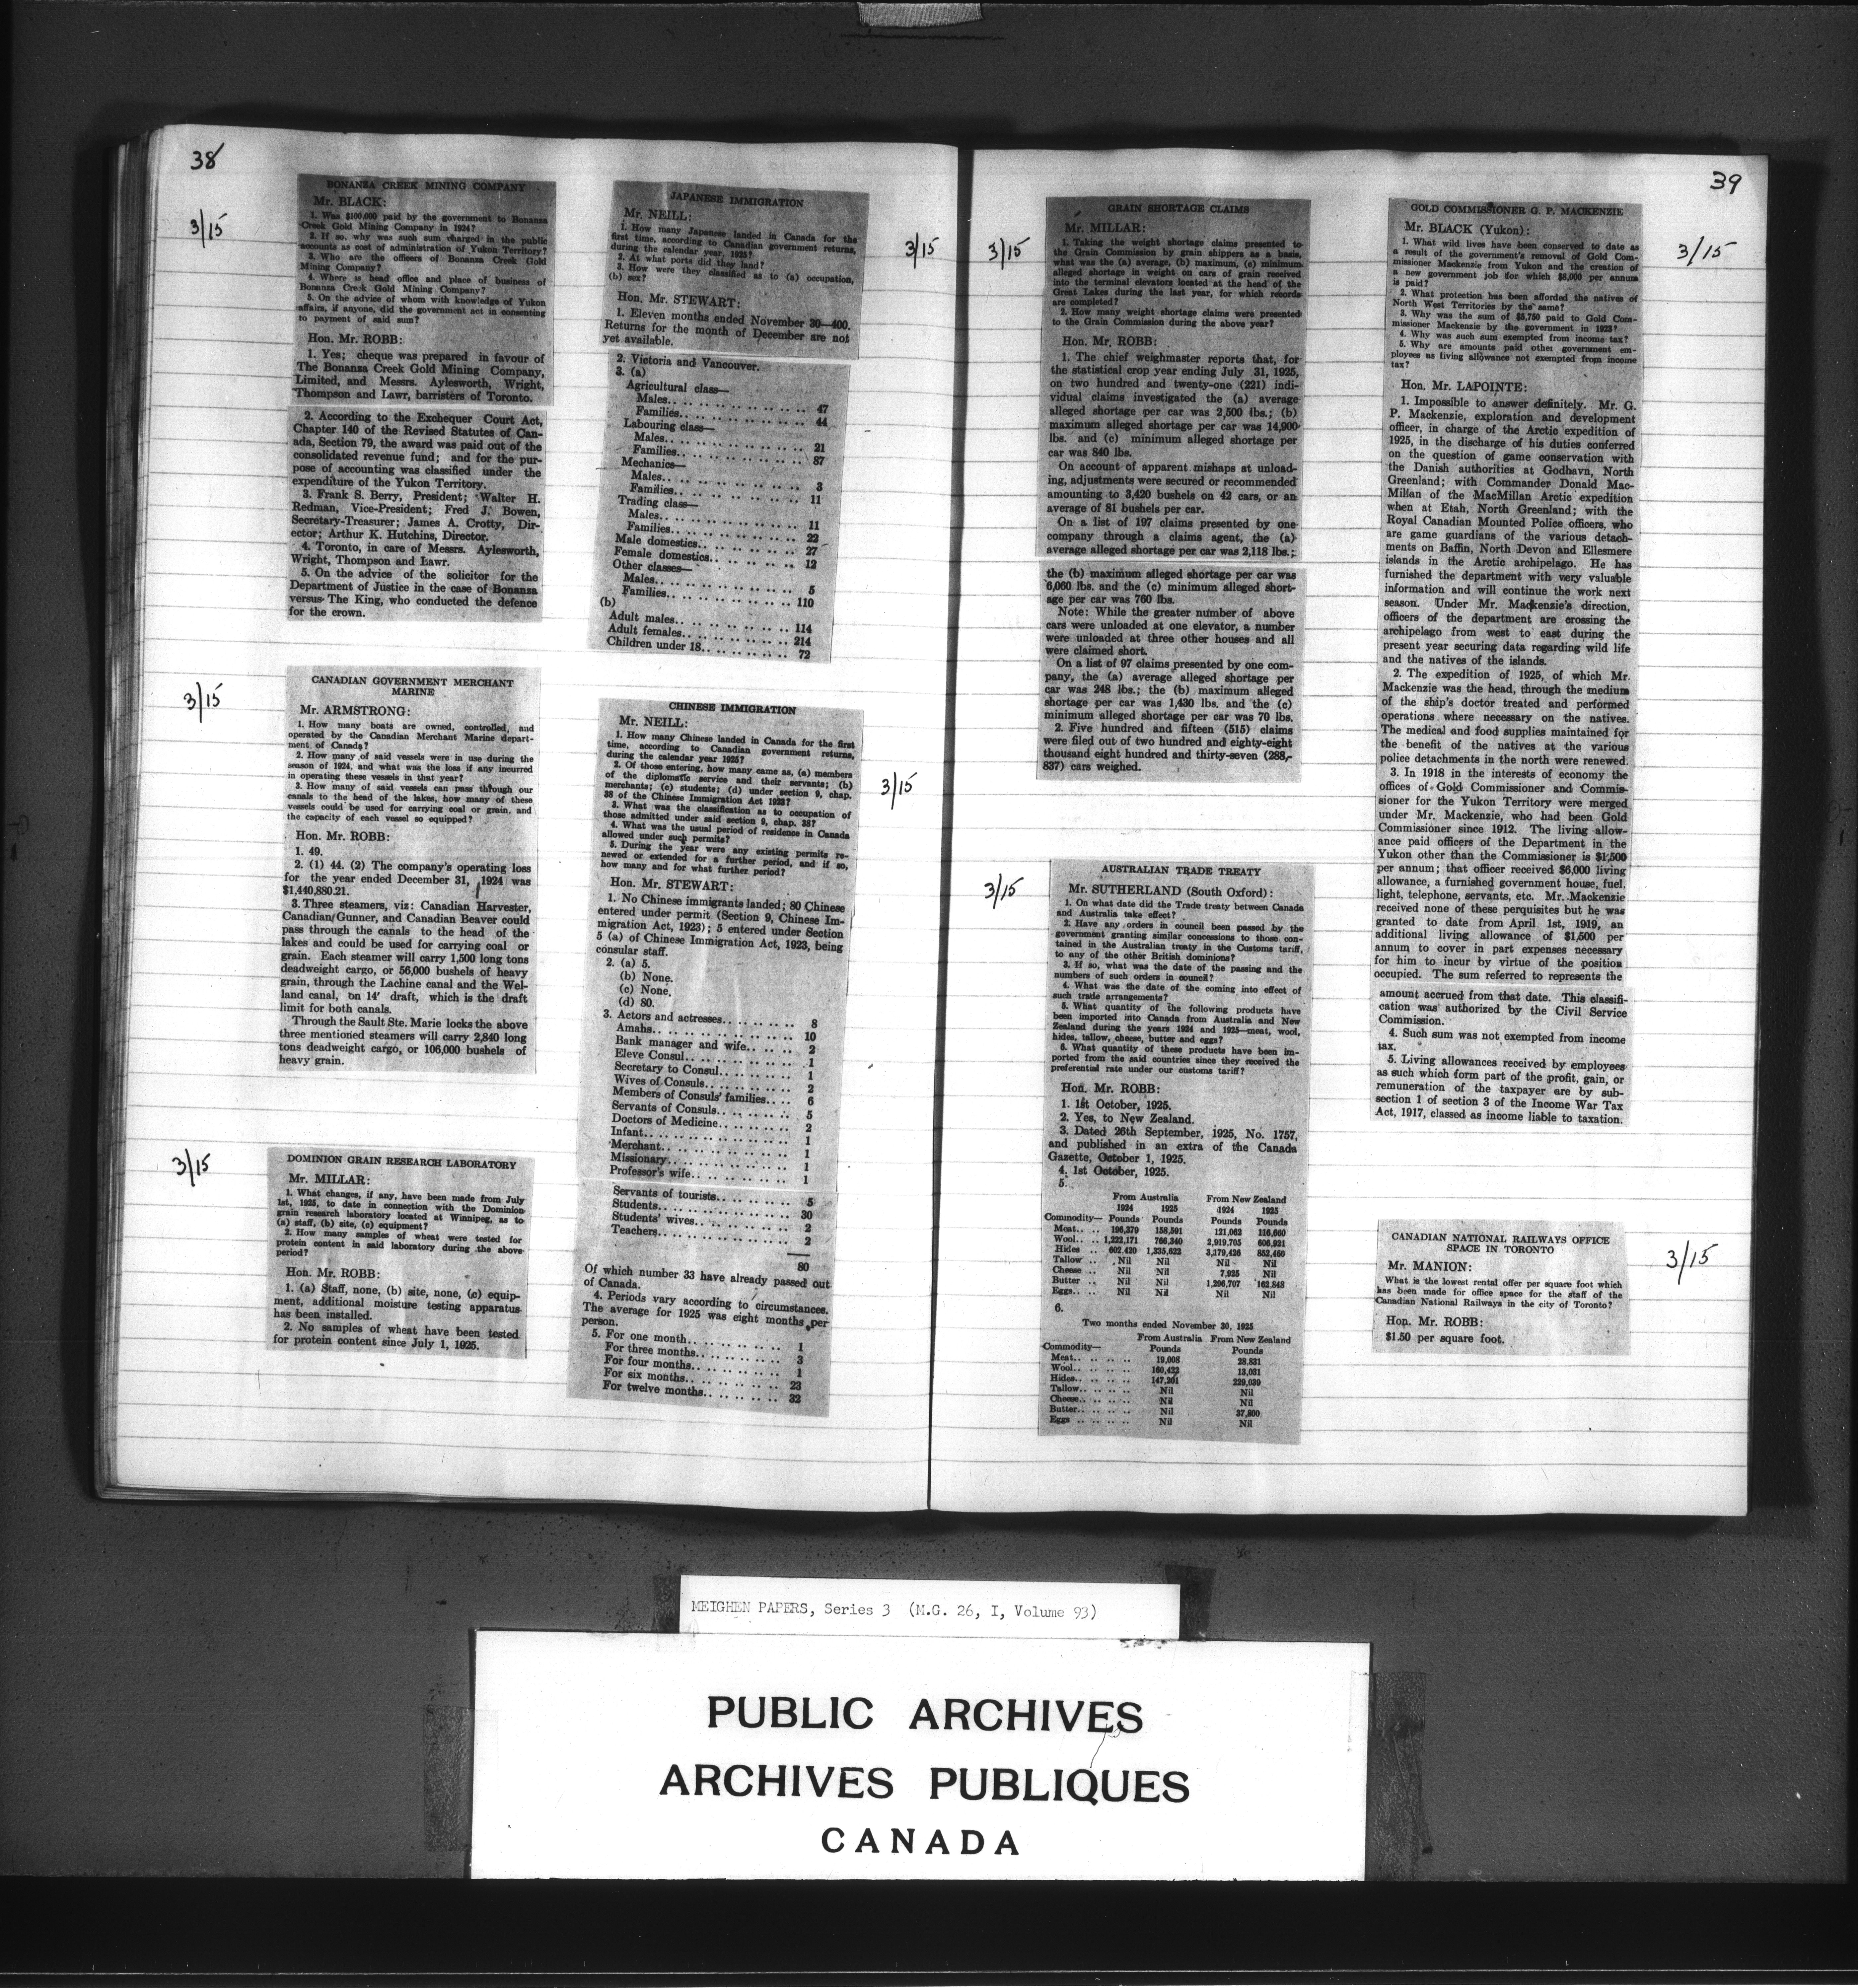 38
3/15
BONANZA CREEK MINING COMPANY
Mr. BLACK:
1. Was $100,000 paid by the government to Bonanza
Creek Gold Mining Company in 1924?
2. If so, why was such sum charged in the public
accounts as cost of administration of Yukon Territory?
3. Who are the officers of Bonanza Creek Gold
Mining Company?
4. Where is head office and place of business of
Bonanza Creek Gold Mining Company?
5. On the advice of whom with knowledge of Yukon
affairs, if anyone, did the government act in consenting
to payment of said sum?
Hon. Mr. ROBB:
1. Yes; cheque was prepared in favour of
The Bonanza Creek Gold Mining Company,
Limited, and Messrs. Aylesworth, Wright,
Thompson and Lawr, barristers of Toronto.
2. According to the Exchequer Court Act,
Chapter 140 of the Revised Statutes of Can-
ada, Section 79, the award was paid out of the
consolidated revenue fund; and for the pur-
pose of accounting was classified under the
expenditure of the Yukon Territory.
3. Frank S. Berry, President; Walter H.
Redman, Vice-President; Fred J. Bowen,
Secretary-Treasurer; James A. Crotty, Dir-
ector; Arthur K. Hutchins, Director.
4. Toronto, in care of Messrs. Aylesworth,
Wright, Thompson and Lawr.
5. On the advice of the solicitor for the
Department of Justice in the case of Bonanza
versus The King, who conducted the defence
for the crown.
3/15
CANADIAN GOVERNMENT MERCHANT
MARINE
Mr. ARMSTRONG:
1. How many boats are owned, controlled, and
operated by the Canadian Merchant Marine depart-
ment of Canada?
2. How many of said vessels were in use during the
season of 1924, and what was the loss if any incurred
in operating these vessels in that year?
3. How many of said vessels can pass through our
canals to the head of the lakes, how many of these
vessels could be used for carrying coal or grain, and
the capacity of each vessel so equipped?
Hon. Mr. ROBB:
1. 49.
2. (1) 44. (2) The company's operating loss
for the year ended December 31, 1924 was
$1,440,880.21.
3. Three steamers, viz: Canadian Harvester,
Canadian Gunner, and Canadian Beaver could
pass through the canals to the head of the
lakes and could be used for carrying coal or
grain. Each steamer will carry 1,500 long tons
deadweight cargo, or 56,000 bushels of heavy
grain, through the Lachine canal and the Wel-
land canal, on 14' draft, which is the draft
limit for both canals.
Through the Sault Ste. Marie locks the above
three mentioned steamers will carry 2,840 long
tons deadweight cargo, or 106,000 bushels of
heavy grain.
3/15
DOMINION GRAIN RESEARCH LABORATORY
Mr. MILLAR:
1. What changes, if any, have been made from July
1st, 1925, to date in connection with the Dominion
grain research laboratory located at Winnipeg, as to
(a) staff, (b) site, (c) equipment?
2. How many samples of wheat were tested for
protein content in said laboratory during the above
period?
Hon. Mr. ROBB:
1. (a) Staff, none, (b) site, none, (c) equip-
ment, additional moisture testing apparatus
has been installed.
2. No samples of wheat have been tested
for protein content since July 1, 1925.
3/15
JAPANESE IMMIGRATION
Mr. NEILL:
1. How many Japanese landed in Canada for the
first time, according to Canadian government returns,
during the calendar year, 1925?
2. At what ports did they land?
3. How were they classified as to (a) occupation,
(b) sex?
Hon. Mr. STEWART:
1. Eleven months ended November 30—400.
Returns for the month of December are not
yet available.
2. Victoria and Vancouver.
3. (a)
Agricultural class—
Males.. .. .. .. .. .. .. .. 47
Families.. .. .. .. .. .. .. 44
Labouring class—
Males.. .. .. .. .. .. .. .. 21
Families.. .. .. .. .. .. .. 87
Mechanics—
Males.. .. .. .. .. .. .. .. 3
Families.. .. .. .. .. .. .. 11
Trading class—
Males.. .. .. .. .. .. .. .. 11
Families.. .. .. .. .. .. .. 22
Male domestics.. .. .. .. .. .. 27
Female domestics.. .. .. .. .. 12
Other classes—
Males.. .. .. .. .. .. .. .. 5
Families.. .. .. .. .. .. .. 110
(b)
Adult males.. .. .. .. .. .. .. 114
Adult females.. .. .. .. .. .. 214
Children under 18.. .. .. .. .. 72
3/15
CHINESE IMMIGRATION
Mr. NEILL:
1. How many Chinese landed in Canada for the first
time, according to Canadian government returns,
during the calendar year 1925?
2. Of those entering, how many came as, (a) members
of the diplomatic service and their servants; (b)
merchants; (c) students; (d) under section 9, chap.
38 of the Chinese Immigration Act 1923?
3. What was the classification as to occupation of
those admitted under said section 9, chap. 38?
4. What was the usual period of residence in Canada
allowed under such permits?
5. During the year were any existing permits re-
newed or extended for a further period, and if so,
how many and for what further period?
Hon. Mr. STEWART:
1. No Chinese immigrants landed; 80 Chinese
entered under permit (Section 9, Chinese Im-
migration Act, 1923); 5 entered under Section
5 (a) of Chinese Immigration Act, 1923, being
consular staff.
2. (a) 5.
(b) None.
(c) None.
(d) 80.
3. Actors and actresses.. .. .. .. .. 8
Amahs.. .. .. .. .. .. .. .. 10
Bank manager and wife.. .. .. 2
Eleve Consul.. .. .. .. .. .. 1
Secretary to Consul.. .. .. .. 1
Wives of Consuls.. .. .. .. .. 2
Members of Consuls' families.. .. 6
Servants of Consuls.. .. .. .. 5
Doctors of Medicine.. .. .. .. 2
Infant.. .. .. .. .. .. .. .. 1
Merchant.. .. .. .. .. .. .. 1
Missionary.. .. .. .. .. .. .. 1
Professor's wife.. .. .. .. .. 1
Servants of tourists.. .. .. .. 5
Students.. .. .. .. .. .. .. 30
Students' wives.. .. .. .. .. 2
Teachers.. .. .. .. .. .. .. 2
80
Of which number 33 have already passed out
of Canada.
4. Periods vary according to circumstances.
The average for 1925 was eight months per
person.
5. For one month.. .. .. .. .. .. 1
For three months.. .. .. .. .. 3
For four months.. .. .. .. .. 1
For six months.. .. .. .. .. .. 23
For twelve months.. .. .. .. .. 32
39
3/15
GRAIN SHORTAGE CLAIMS
Mr. MILLAR:
1. Taking the weight shortage claims presented to
the Grain Commission by grain shippers as a basis,
what was the (a) average, (b) maximum, (c) minimum
alleged shortage in weight on cars of grain received
into the terminal elevators located at the head of the
Great Lakes during the last year, for which records
are completed?
2. How many weight shortage claims were presented
to the Grain Commission during the above year?
Hon. Mr. ROBB:
1. The chief weighmaster reports that, for
the statistical crop year ending July 31, 1925,
on two hundred and twenty-one (221) indi-
vidual claims investigated the (a) average
alleged shortage per car was 2,500 lbs.; (b)
maximum alleged shortage per car was 14,900
lbs. and (c) minimum alleged shortage per
car was 840 lbs.
On account of apparent mishaps at unload-
ing, adjustments were secured or recommended
amounting to 3,420 bushels on 42 cars, or an
average of 81 bushels per car.
On a list of 197 claims presented by one
company through a claims agent, the (a)
average alleged shortage per car was 2,118 lbs.;
the (b) maximum alleged shortage per car was
6,060 lbs. and the (c) minimum alleged short-
age per car was 760 lbs.
Note: While the greater number of above
cars were unloaded at one elevator, a number
were unloaded at three other houses and all
were claimed short.
On a list of 97 claims presented by one com-
pany, the (a) average alleged shortage per
car was 248 lbs.; the (b) maximum alleged
shortage per car was 1,430 lbs. and the (c)
minimum alleged shortage per car was 70 lbs.
2. Five hundred and fifteen (515) claims
were filed out of two hundred and eighty-eight
thousand eight hundred and thirty-seven (288,-
837) cars weighed.
3/15
AUSTRALIAN TRADE TREATY
Mr. SUTHERLAND (South Oxford):
1. On what date did the Trade treaty between Canada
and Australia take effect?
2. Have any orders in council been passed by the
government granting similar concessions to those con-
tained in the Australian treaty in the Customs tariff,
to any of the other British dominions?
3. If so, what was the date of the passing and the
numbers of such orders in council?
4. What was the date of the coming into effect of
such trade arrangements?
5. What quantity of the following products have
been imported into Canada from Australia and New
Zealand during the years 1924 and 1925—meat, wool,
hides, tallow, cheese, butter and eggs?
6. What quantity of these products have been im-
ported from the said countries since they received the
preferential rate under our customs tariff?
Hon. Mr. ROBB:
1. 1st October, 1925.
2. Yes, to New Zealand.
3. Dated 26th September, 1925, No. 1757,
and published in an extra of the Canada
Gazette, October 1, 1925.
4. 1st October, 1925.
5.
From Australia From New Zealand
1924 1925 1924 1925
Commodity— Pounds Pounds Pounds Pounds
Meat.. .. 196,379 158,591 121,062 116,660
Wool.. .. 1,222,171 766,340 2,919,705 606,921
Hides .. 602,420 1,335,623 3,179,426 852,460
Tallow .. Nil Nil Nil Nil
Cheese .. Nil Nil 7,925 Nil
Butter .. Nil Nil 1,296,707 162,848
Eggs.. .. Nil Nil Nil Nil
6.
Two months ended November 30, 1925
From Australia From New Zealand
Commodity— Pounds Pounds
Meat.. .. .. .. 19,008 28,831
Wool.. .. .. .. 160,422 13,031
Hides.. .. .. .. 147,201 229,039
Tallow.. .. .. .. Nil Nil
Cheese.. .. .. .. Nil Nil
Butter.. .. .. .. Nil 37,800
Eggs .. .. .. .. Nil Nil
3/15
GOLD COMMISSIONER G. P. MACKENZIE
Mr. BLACK (Yukon):
1. What wild lives have been conserved to date as
a result of the government's removal of Gold Com-
missioner Mackenzie from Yukon and the creation of
a new government job for which $8,000 per annum
is paid?
2. What protection has been afforded the natives of
North West Territories by the same?
3. Why was the sum of $5,750 paid to Gold Com-
missioner Mackenzie by the government in 1923?
4. Why was such sum exempted from income tax?
5. Why are amounts paid other government em-
ployees as living allowance not exempted from income
tax?
Hon. Mr. LAPOINTE:
1. Impossible to answer definitely. Mr. G.
P. Mackenzie, exploration and development
officer, in charge of the Arctic expedition of
1925, in the discharge of his duties conferred
on the question of game conservation with
the Danish authorities at Godhavn, North
Greenland; with Commander Donald Mac-
Millan of the MacMillan Arctic expedition
when at Etah, North Greenland; with the
Royal Canadian Mounted Police officers, who
are game guardians of the various detach-
ments on Baffin, North Devon and Ellesmere
islands in the Arctic archipelago. He has
furnished the department with very valuable
information and will continue the work next
season. Under Mr. Mackenzie's direction,
officers of the department are crossing the
archipelago from west to east during the
present year securing data regarding wild life
and the natives of the islands.
2. The expedition of 1925, of which Mr.
Mackenzie was the head, through the medium
of the ship's doctor treated and performed
operations where necessary on the natives.
The medical and food supplies maintained for
the benefit of the natives at the various
police detachments in the north were renewed.
3. In 1918 in the interests of economy the
offices of Gold Commissioner and Commis-
sioner for the Yukon Territory were merged
under Mr. Mackenzie, who had been Gold
Commissioner since 1912. The living allow-
ance paid officers of the Department in the
Yukon other than the Commissioner is $1,500
per annum; that officer received $6,000 living
allowance, a furnished government house, fuel,
light, telephone, servants, etc. Mr. Mackenzie
received none of these perquisites but he was
granted to date from April 1st, 1919, an
additional living allowance of $1,500 per
annum to cover in part expenses necessary
for him to incur by virtue of the position
occupied. The sum referred to represents the
amount accrued from that date. This classifi-
cation was authorized by the Civil Service
Commission.
4. Such sum was not exempted from income
tax.
5. Living allowances received by employees
as such which form part of the profit, gain, or
remuneration of the taxpayer are by sub-
section 1 of section 3 of the Income War Tax
Act, 1917, classed as income liable to taxation.
3/15
CANADIAN NATIONAL RAILWAYS OFFICE
SPACE IN TORONTO
Mr. MANION:
What is the lowest rental offer per square foot which
has been made for office space for the staff of the
Canadian National Railways in the city of Toronto?
Hon. Mr. ROBB:
$1.50 per square foot.
3/15
MEIGHEN PAPERS, Series 3 (M.G. 26, I, Volume 93)
PUBLIC ARCHIVES
ARCHIVES PUBLIQUES
CANADA